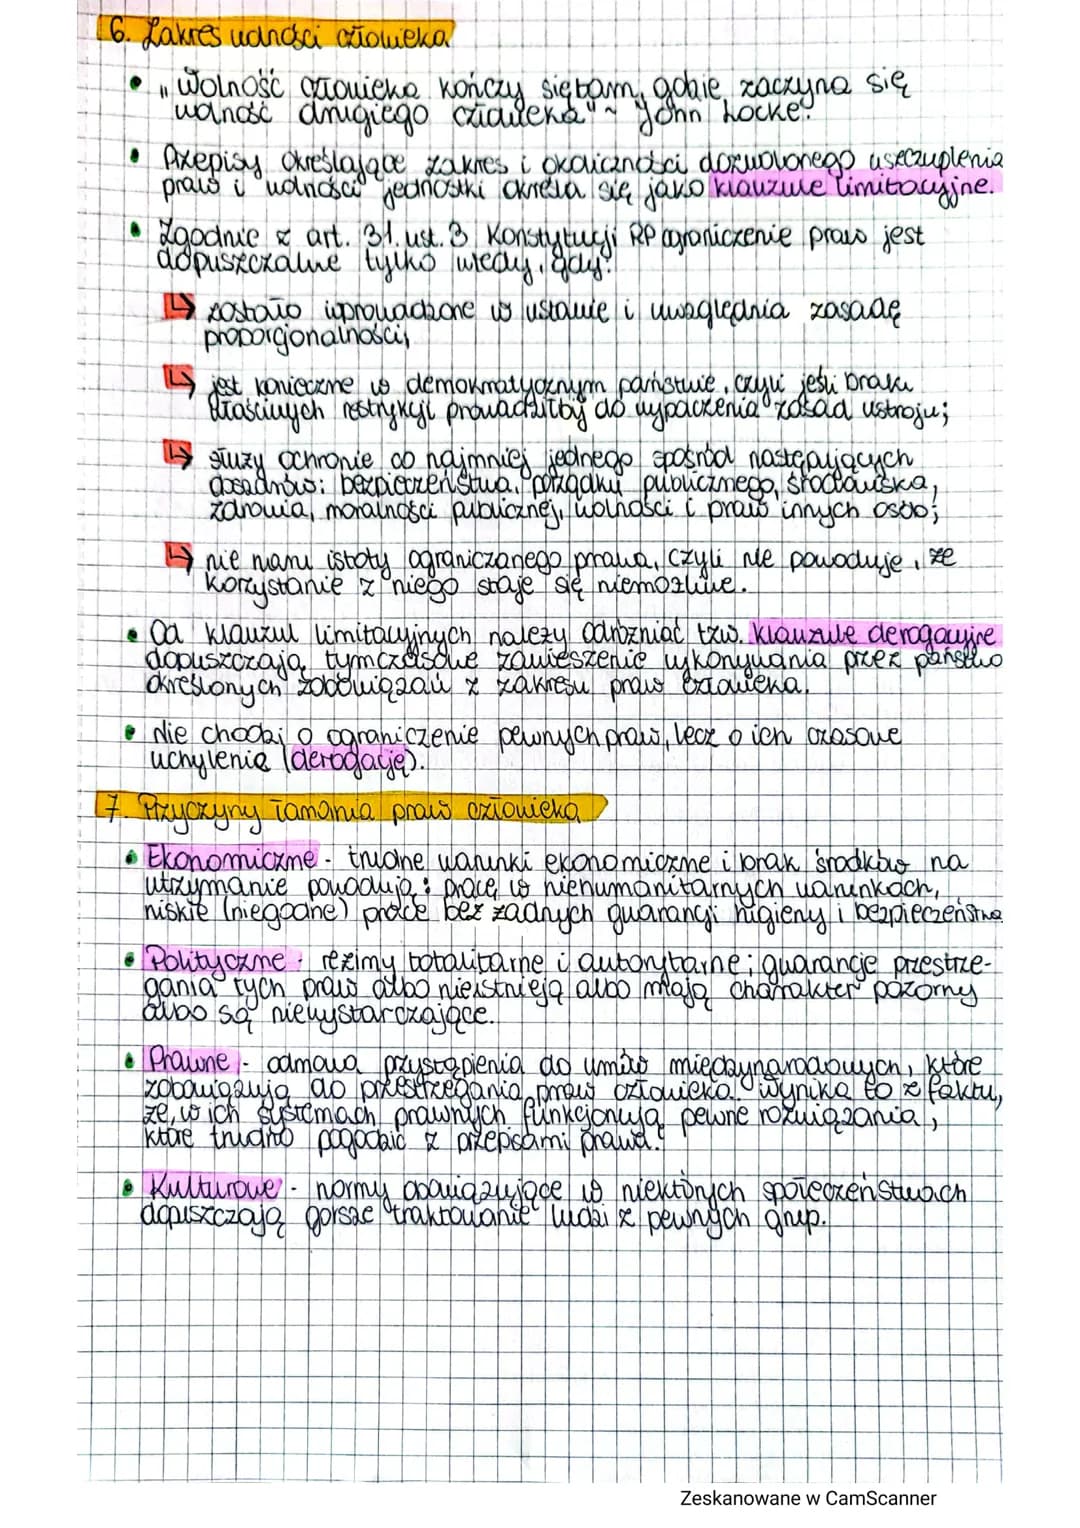 6. Zakres wolności człowieka
• „Wolność człowieka kończy się tam, gdzie zaczyna się
wolność drugiego człowieka" ~ John Locke.
• Przepisy określające zakres i okoliczności dozwolonego uszczuplenia
praw i wolności jednostki określa się jako klauzule limitacyjne.
• Zgodnie z art. 31. ust. 3 Konstytucji RP ograniczenie praw jest
dopuszczalne tylko wtedy, gdy:
↳ zostało wprowadzone w ustawie i uwzględnia zasadę
proporcjonalności;
↳ jest konieczne w demokratycznym państwie, czyli jeśli brak
właściwych restrykcji prowadziłby do wypaczenia zasad ustroju;
↳ służy ochronie co najmniej jednego spośród następujących
bezpieczeństwa, porządku publicznego, środowiska,
zdrowia, moralności publicznej, wolności i praw innych osób;
↳ nie istoty ograniczanego prawa, czyli nie powoduje, że
korzystanie z niego staje się niemożliwe.
• Od klauzul limitacyjnych należy odróżniać tzw. klauzule derogacyjne
dopuszczają tymczasowe zawieszenie wykonywania przez państwo
określonych zobowiązań z zakresu praw człowieka.
• Nie chodzi o ograniczenie pewnych praw, lecz o ich czasowe
uchylenia (derogację).
7. Przyczyny łamania praw człowieka
• Ekonomiczne - trudne warunki ekonomiczne i brak środków na
utrzymanie powodują: pracę w niehumanitarnych warunkach,
niskie (niegodne) płace bez żadnych gwarancji higieny i bezpieczeństwa
• Polityczne - reżimy totalitarne i autorytarne; gwarancje przestrze-
gania tych praw albo nie istnieją albo mają charakter pozorny
albo są niewystarczające.
• Prawne - odmowa przystąpienia do umów międzynarodowych, które
zobowiązują do przestrzegania praw człowieka. Wynika to z faktu,
że, w ich systemach prawnych funkcjonują pewne rozwiązania,
które trudno pogodzić z przepisami prawa.
• Kulturowe - normy obowiązujące w niektórych społeczeństwach
dopuszczają gorsze traktowanie ludzi z pewnych grup.
Zeskanowane w CamScanner